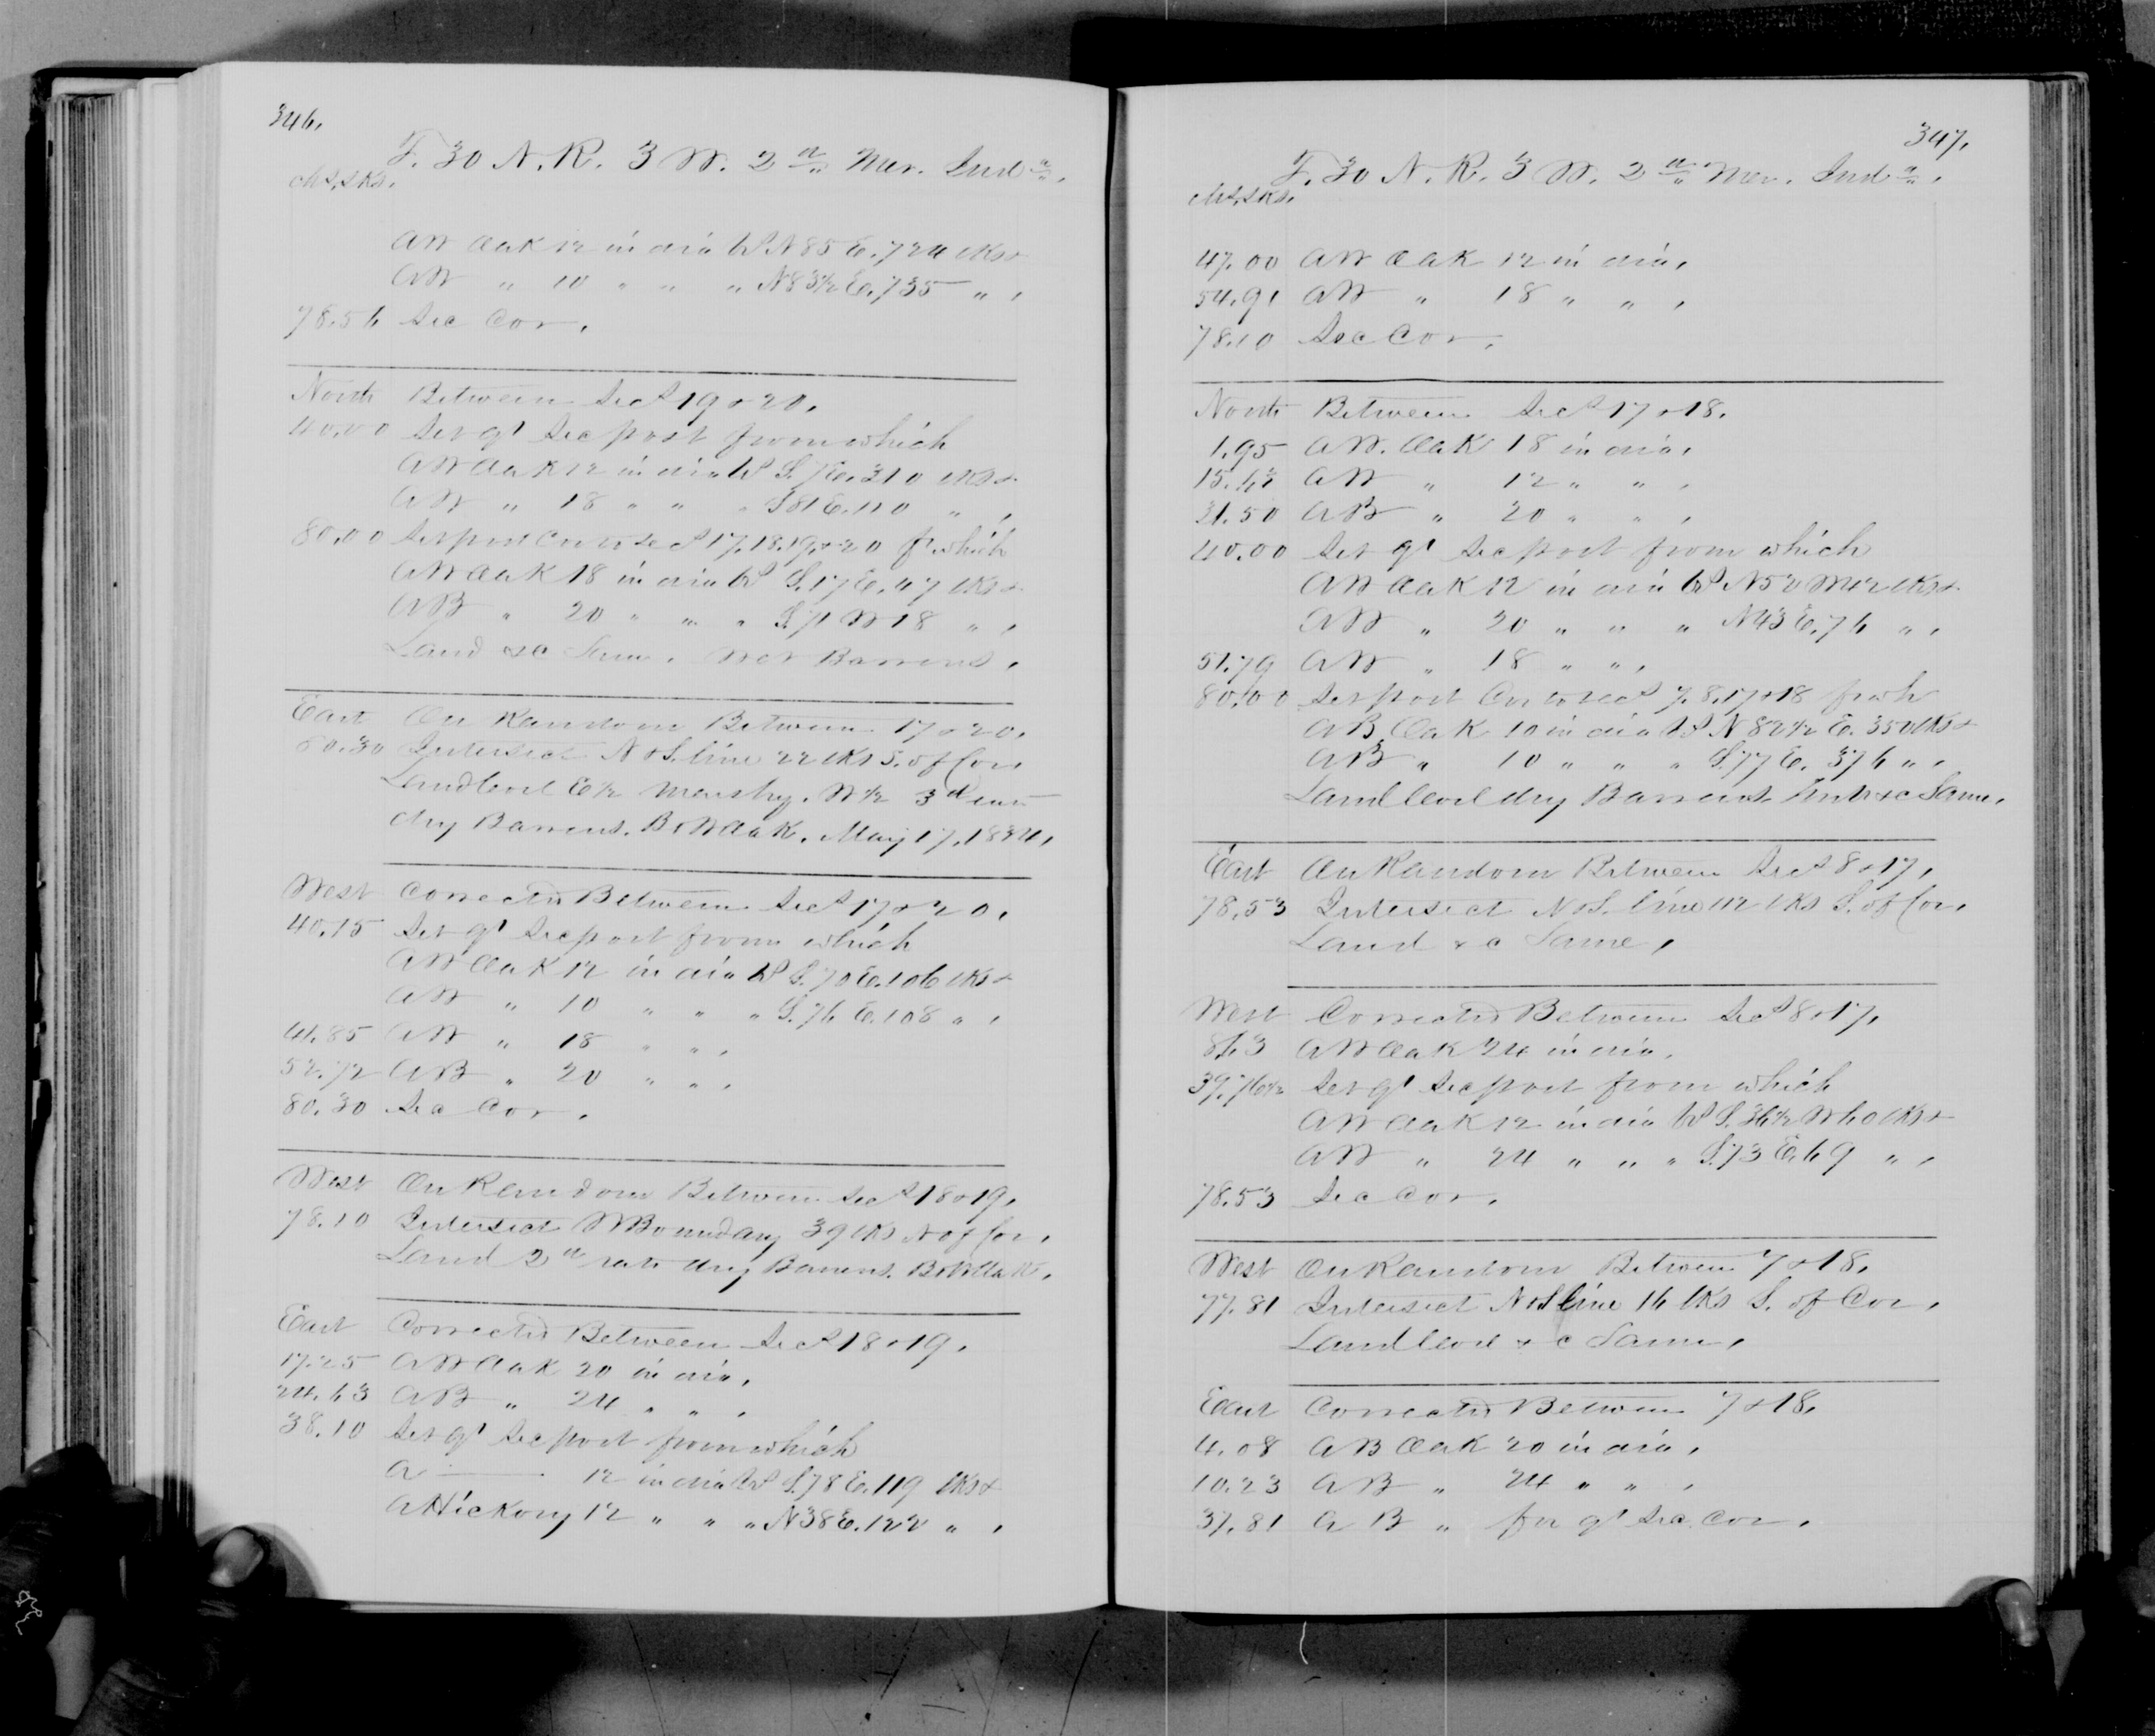 346.
T. 30 N. R. 3 W. 2nd Mer. Inda.
chs. lks.
A W Oak 12 in dia bs N 85 E. 724 lks &
A W " 10 " " " N 83½ E. 735 " ,
78.56 Sec Cor.
North Between Secs 19 & 20.
40.00 Set qr Sec post from which
A W Oak 12 in dia bs S. 7 E. 310 lks &
A W " 18 " " " S 81 E. 110 " ,
80.00 Set post Cor to Secs 17, 18, 19, & 20 fr which
A W Oak 18 in dia bs S. 17 E. 47 lks &
A B " 20 " " " S. 71 W 18 " ,
Land &c Same. Wet Barrens.
East On Random Between 17 & 20.
80.30 Intersect N & S. line 22 lks S. of Cor.
Land level E ½ Marshy. W ½ 3d rate
dry Barrens. B & W Oak. May 17, 1834.
West Corrected Between Secs 17 & 20.
40.15 Set qr Sec post from which
A W Oak 12 in dia bs S. 70 E. 106 lks &
A W " 10 " " " S. 76 E. 108 " ,
41.85 A W " 18 " " ,
52.72 A B " 20 " " ,
80.30 Sec Cor.
West On Random Between Secs 18 & 19.
78.10 Intersect W Boundary 39 lks N of Cor.
Land 2nd rate dry Barrens. B & W Oak.
East Corrected Between Secs 18 & 19.
17.25 A W Oak 20 in dia.
24.63 A B " 24 " " ,
38.10 Set qr Sec post from which
A —— 12 in dia bs S. 78 E. 119 lks &
A Hickory 12 " " " N 38 E. 122 " ,
347.
T. 30 N. R. 3 W. 2nd Mer. Inda.
chs. lks.
47.00 A W Oak 12 in dia.
54.91 A W " 18 " " ,
78.10 Sec Cor.
North Between Secs 17 & 18.
1.95 A W. Oak 18 in dia.
15.62 A W " 12 " " ,
21.50 A B " 20 " " ,
40.00 Set qr Sec post from which
A W Oak 12 in dia bs N 52 W 42 lks &
A W " 20 " " " N 43 E. 76 " ,
51.79 A W " 18 " " ,
80.00 Set post Cor to Secs 7, 8, 17 & 18 fr wh
A B. Oak 10 in dia bs N 82½ E. 350 lks &
A B " 10 " " " S. 77 E. 376 " ,
Land level dry Barrens Timb &c Same.
East On Random Between Secs 8 & 17.
78.53 Intersect N & S. line 112 lks S. of Cor.
Land &c Same.
West Corrected Between Secs 8 & 17.
8.63 A W Oak 24 in dia.
39.26½ Set qr Sec post from which
A W Oak 12 in dia bs S. 36½ W 60 lks &
A W " 24 " " " S. 73 E. 69 " ,
78.53 Sec Cor.
West On Random Between 7 & 18.
77.81 Intersect N & S line 16 lks S. of Cor.
Land level &c Same.
East Corrected Between 7 & 18.
4.08 A B Oak 20 in dia.
10.23 A B " 24 " " ,
37.81 A B " for qr Sec Cor.